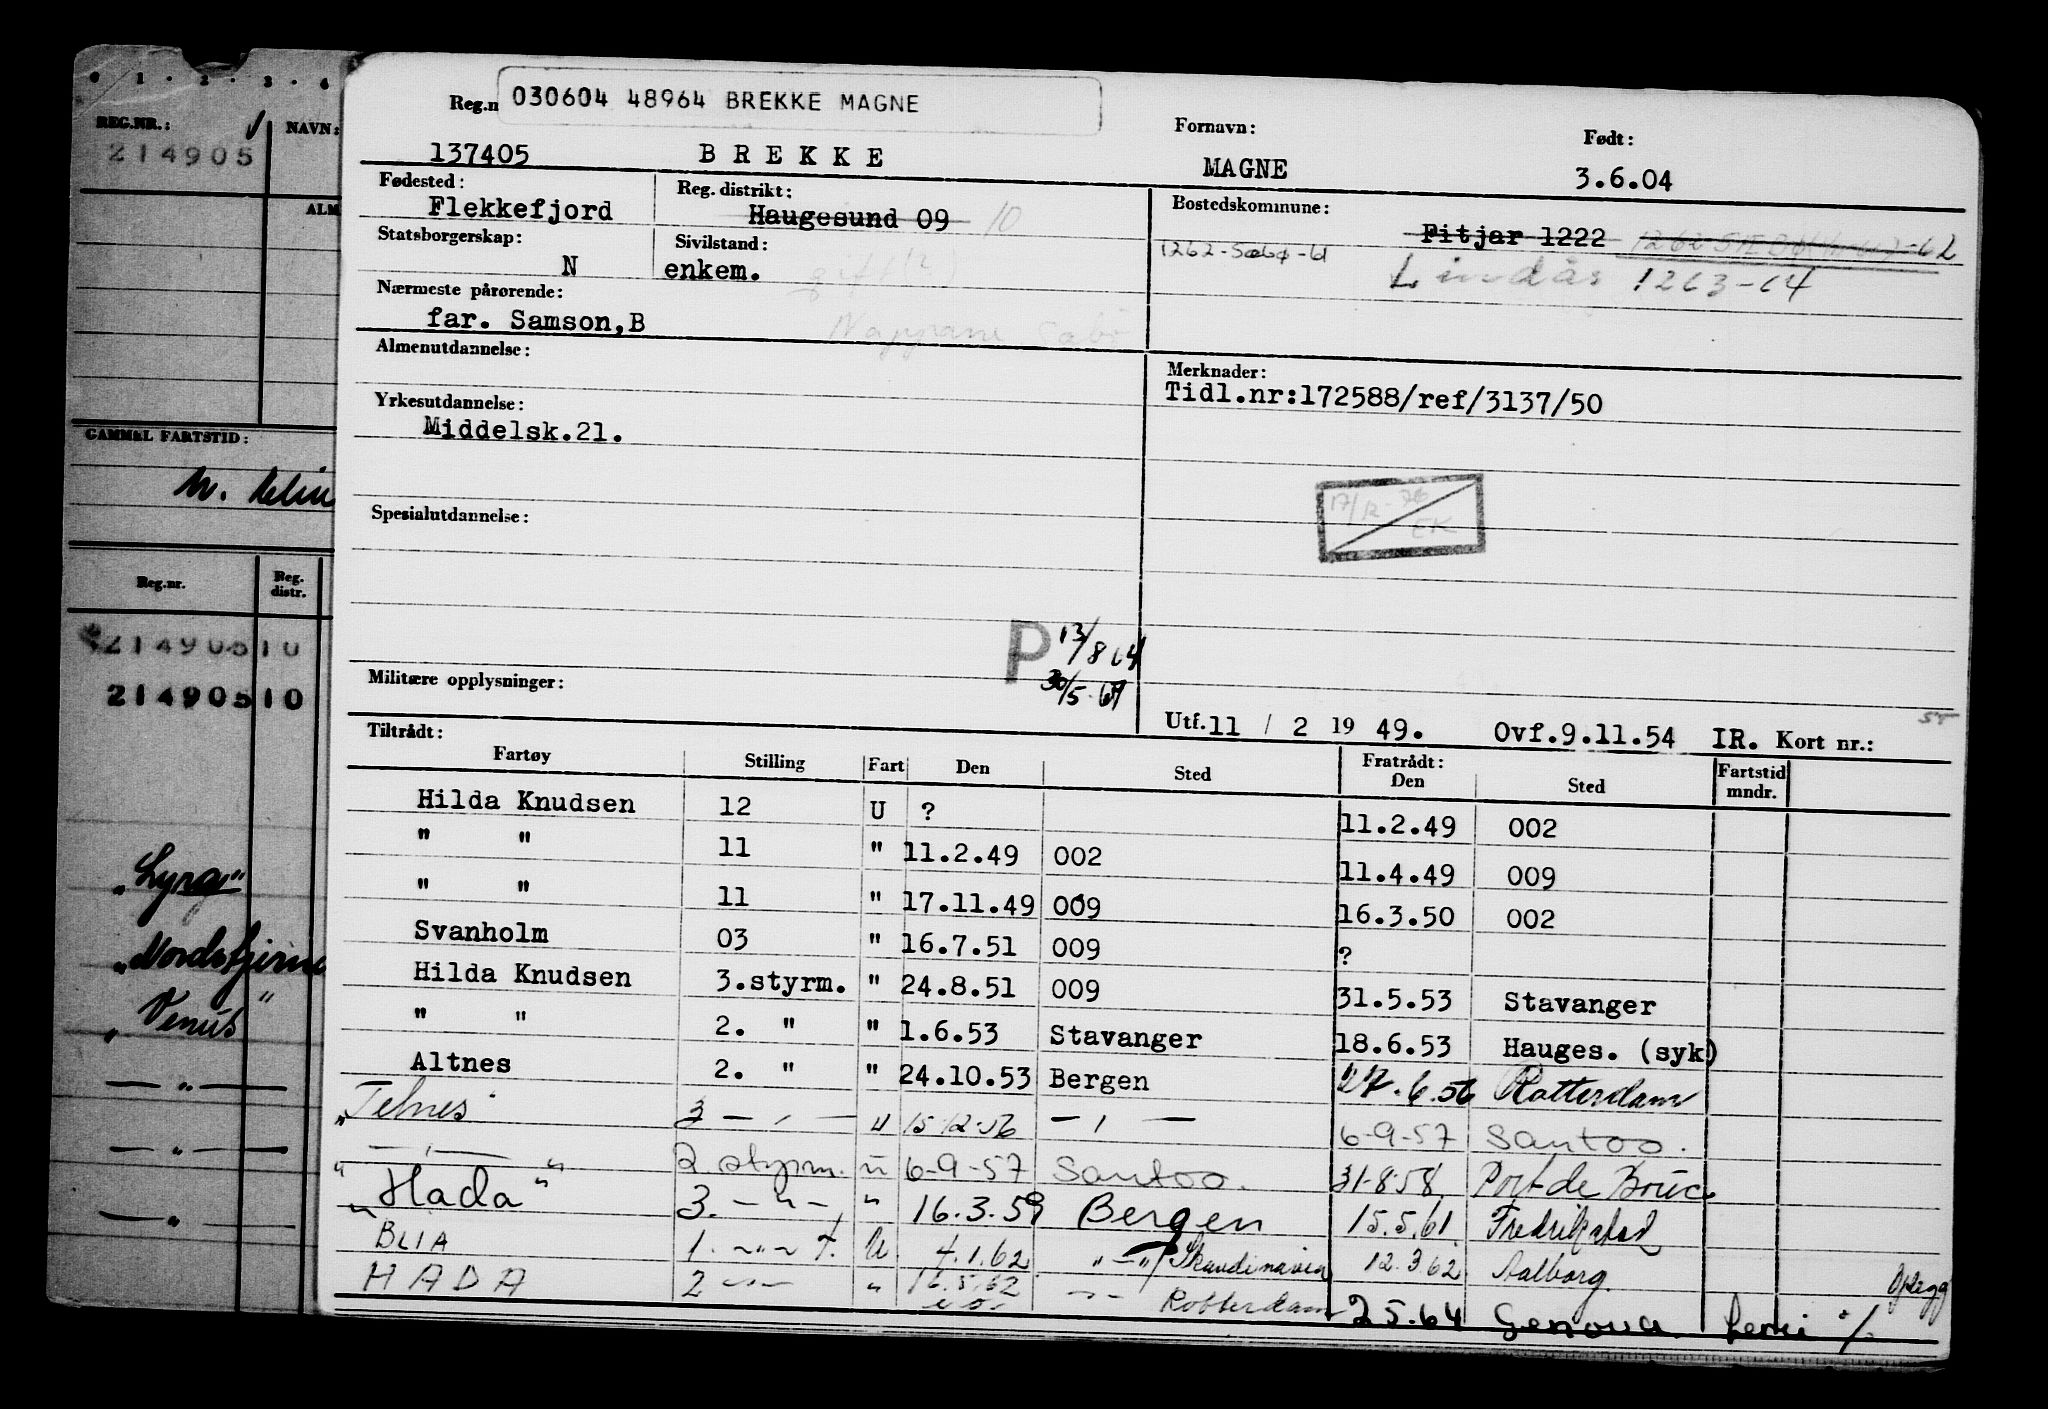 0 1 · 2 · 3 · 4
REG.NR.: NAVN:
214905
ALM
GAMMEL FARTSTID:
Reg.nr. Reg. distr.
214905 10
214905 10
„Lyra"
„Venus"
— " —
— " —
— " —
030604 48964 BREKKE MAGNE
Reg.n Fornavn: Født:
137405 BREKKE MAGNE 3.6.04
Fødested: Reg. distrikt: Bostedskommune:
Flekkefjord Haugesund 09 10 Fitjar 1222
Statsborgerskap: Sivilstand:
N enkem. gift Lindås 1263-64
Nærmeste pårørende:
far. Samson,B
Almenutdannelse: Merknader:
Tidl.nr:172588/ref/3137/50
Yrkesutdannelse:
Middelsk.21.
17/12-76 EK
Spesialutdannelse:
P 13/8 64
30/5-67
Militære opplysninger:
Utf.11 / 2 19 49. Ovf.9.11.54 IR. Kort nr.:
Tiltrådt: Fratrådt:
Fartøy Stilling Fart Den Sted Den Sted Fartstid mndr.
Hilda Knudsen 12 U ? 11.2.49 002
" " 11 " 11.2.49 002 11.4.49 009
" " 11 " 17.11.49 009 16.3.50 002
Svanholm 03 " 16.7.51 009 ?
Hilda Knudsen 3.styrm. " 24.8.51 009 31.5.53 Stavanger
" " 2. " " 1.6.53 Stavanger 18.6.53 Hauges. (syk)
Altnes 2. " " 24.10.53 Bergen 27.6.56 Rotterdam
„Telnes 3 — " — " 15-12-56 — " — 6-9-57 Santoo.
" — " — " 2 styrm. u 6-9-57 Santoo. 31-8-58 Port de Bouc
„Hada" 3. — " — " 16.3.59 Bergen 15.5.61 Fredrikstad
BLIA 1. — " — U 4.1.62 " — " Skandinavia 12.3.62 Aalborg.
HADA 2 — " — " 16.5.62 — " — Rotterdam 25.64 Genova Opplegg